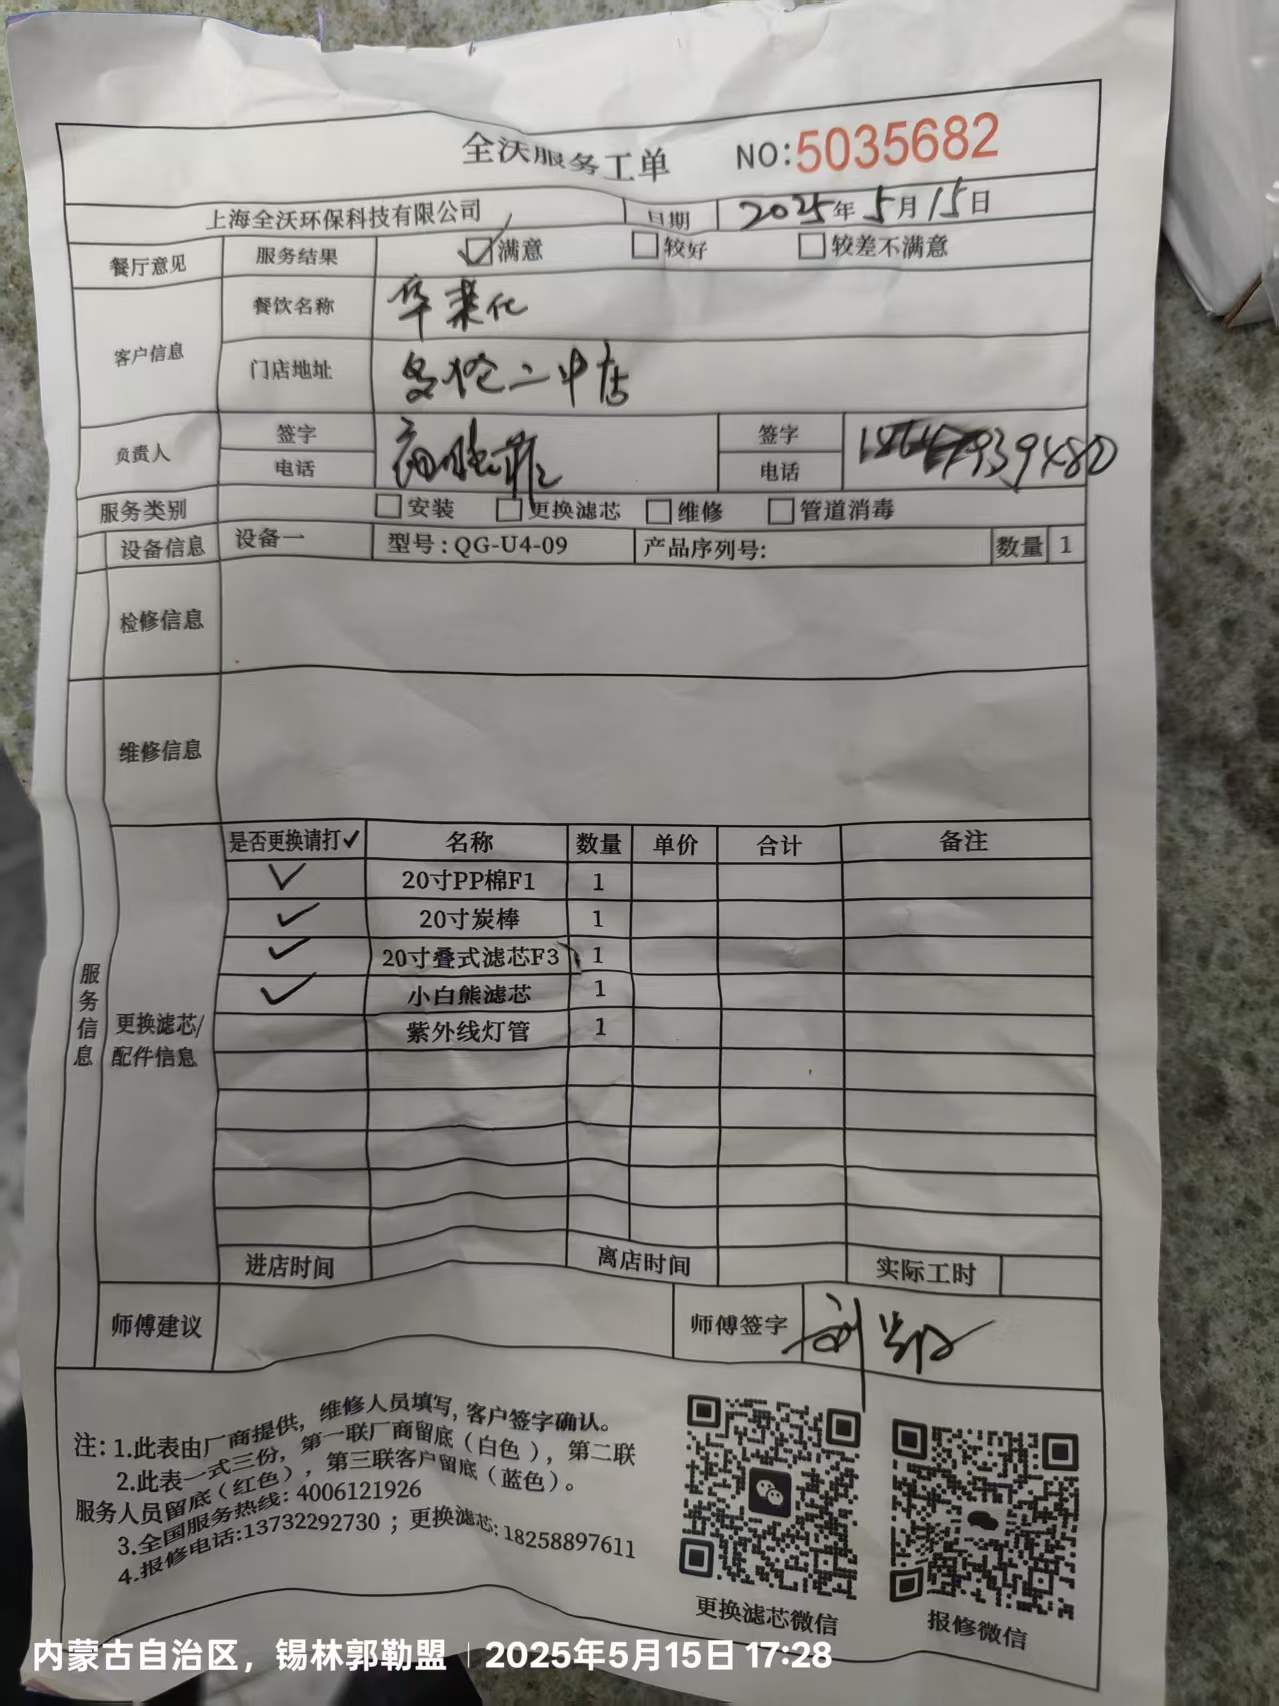 全沃服务工单 NO:5035682
上海全沃环保科技有限公司 日期 2025年5月15日
餐厅意见 服务结果 ☑满意 □较好 □较差不满意
客户信息 餐饮名称 华莱仕
门店地址 多伦二中店
负责人 签字 签字
电话 电话
服务类别 □安装 □更换滤芯 □维修 □管道消毒
设备信息 设备一 型号:QG-U4-09 产品序列号: 数量 1
检修信息
维修信息
服务信息
更换滤芯/
配件信息
是否更换请打✓ 名称 数量 单价 合计 备注
✓ 20寸PP棉F1 1
✓ 20寸炭棒 1
✓ 20寸叠式滤芯F3 1
✓ 小白熊滤芯 1
紫外线灯管 1
进店时间 离店时间 实际工时
师傅建议 师傅签字
注:1.此表由厂商提供，维修人员填写,客户签字确认。
2.此表一式三份，第一联厂商留底（白色），第二联
服务人员留底（红色），第三联客户留底（蓝色）。
3.全国服务热线: 4006121926
4.报修电话:13732292730 ；更换滤芯:18258897611
更换滤芯微信 报修微信
内蒙古自治区，锡林郭勒盟 | 2025年5月15日 17:28